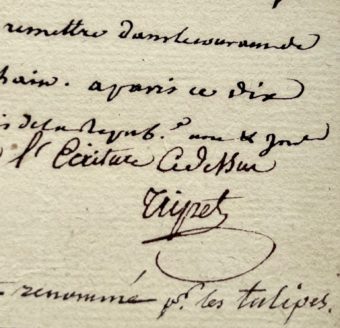 remettre dans le courant de
hain. a paris ce dix
de la Repub.e une &
l'Ecriture Cydessus
Tripet
renommé pr. les tulipes.